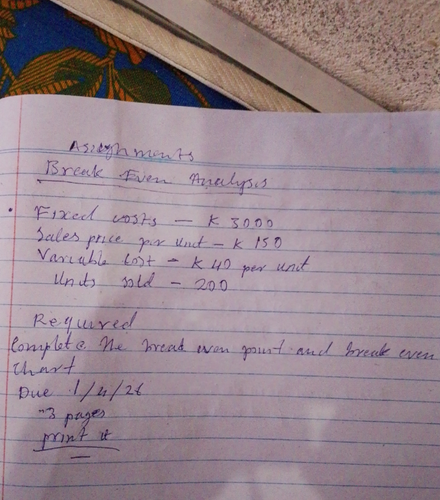 Assignments
Break Even Analysis
• Fixed costs – K 3000
Sales price per unit – K 150
Variable cost – K 40 per unit
Units sold – 200
Required
Complete. The break even point and break even
chart
Due 1/4/26
"3 pages
print it